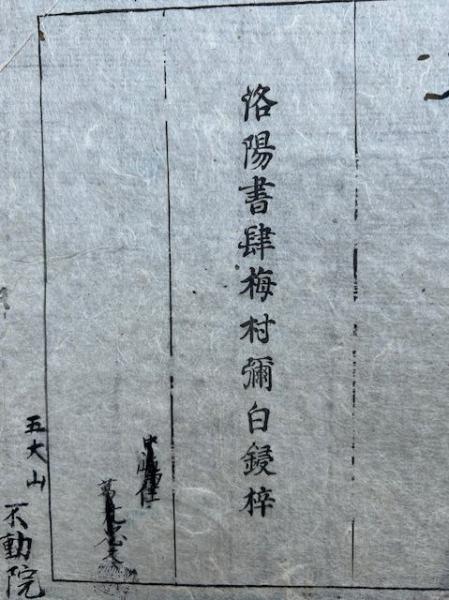 洛陽書肆梅村彌白鋟梓
五大山
不動院